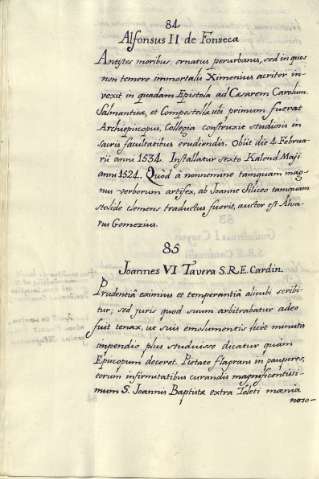 84
Alfonsus II de Fonseca
Antistes moribus ornatus perurbanis, sed in quos
non temere immortalis Ximenius acriter in-
vexit in quadam Epistola ad Cæsarem Carolum.
Salmantiæ, et Compostellæ ubi primum fuerat
Archiepiscopus, Collegia construxit studiosis in
sacris facultatibus erudiendis. Obiit die 4 Februa-
rii anni 1534. Installatur sexto Kalend Maji
anni 1524. Quòd à nonnemine tanquam mag-
nus verborum artifex, ab Joanne Siliceo tanquam
stolide clemens traductus fuerit, auctor est Alva-
rus Gomezius.
85
Joannes VI Tavera S.R.E. Cardin.
Prudentiâ eximius et temperantiâ alicubi scribi-
tur, sed juris quod suum arbitrabatur adeo
fuit tenax, ut suis emolumentis licet minuta
impendio plus studuisse dicatur quàm
Episcopum deceret. Pietate flagrans in pauperes,
eorum infirmitatibus curandis magnificentissi-
mum S. Joannis Baptistæ extra Toleti mœnia
noso-